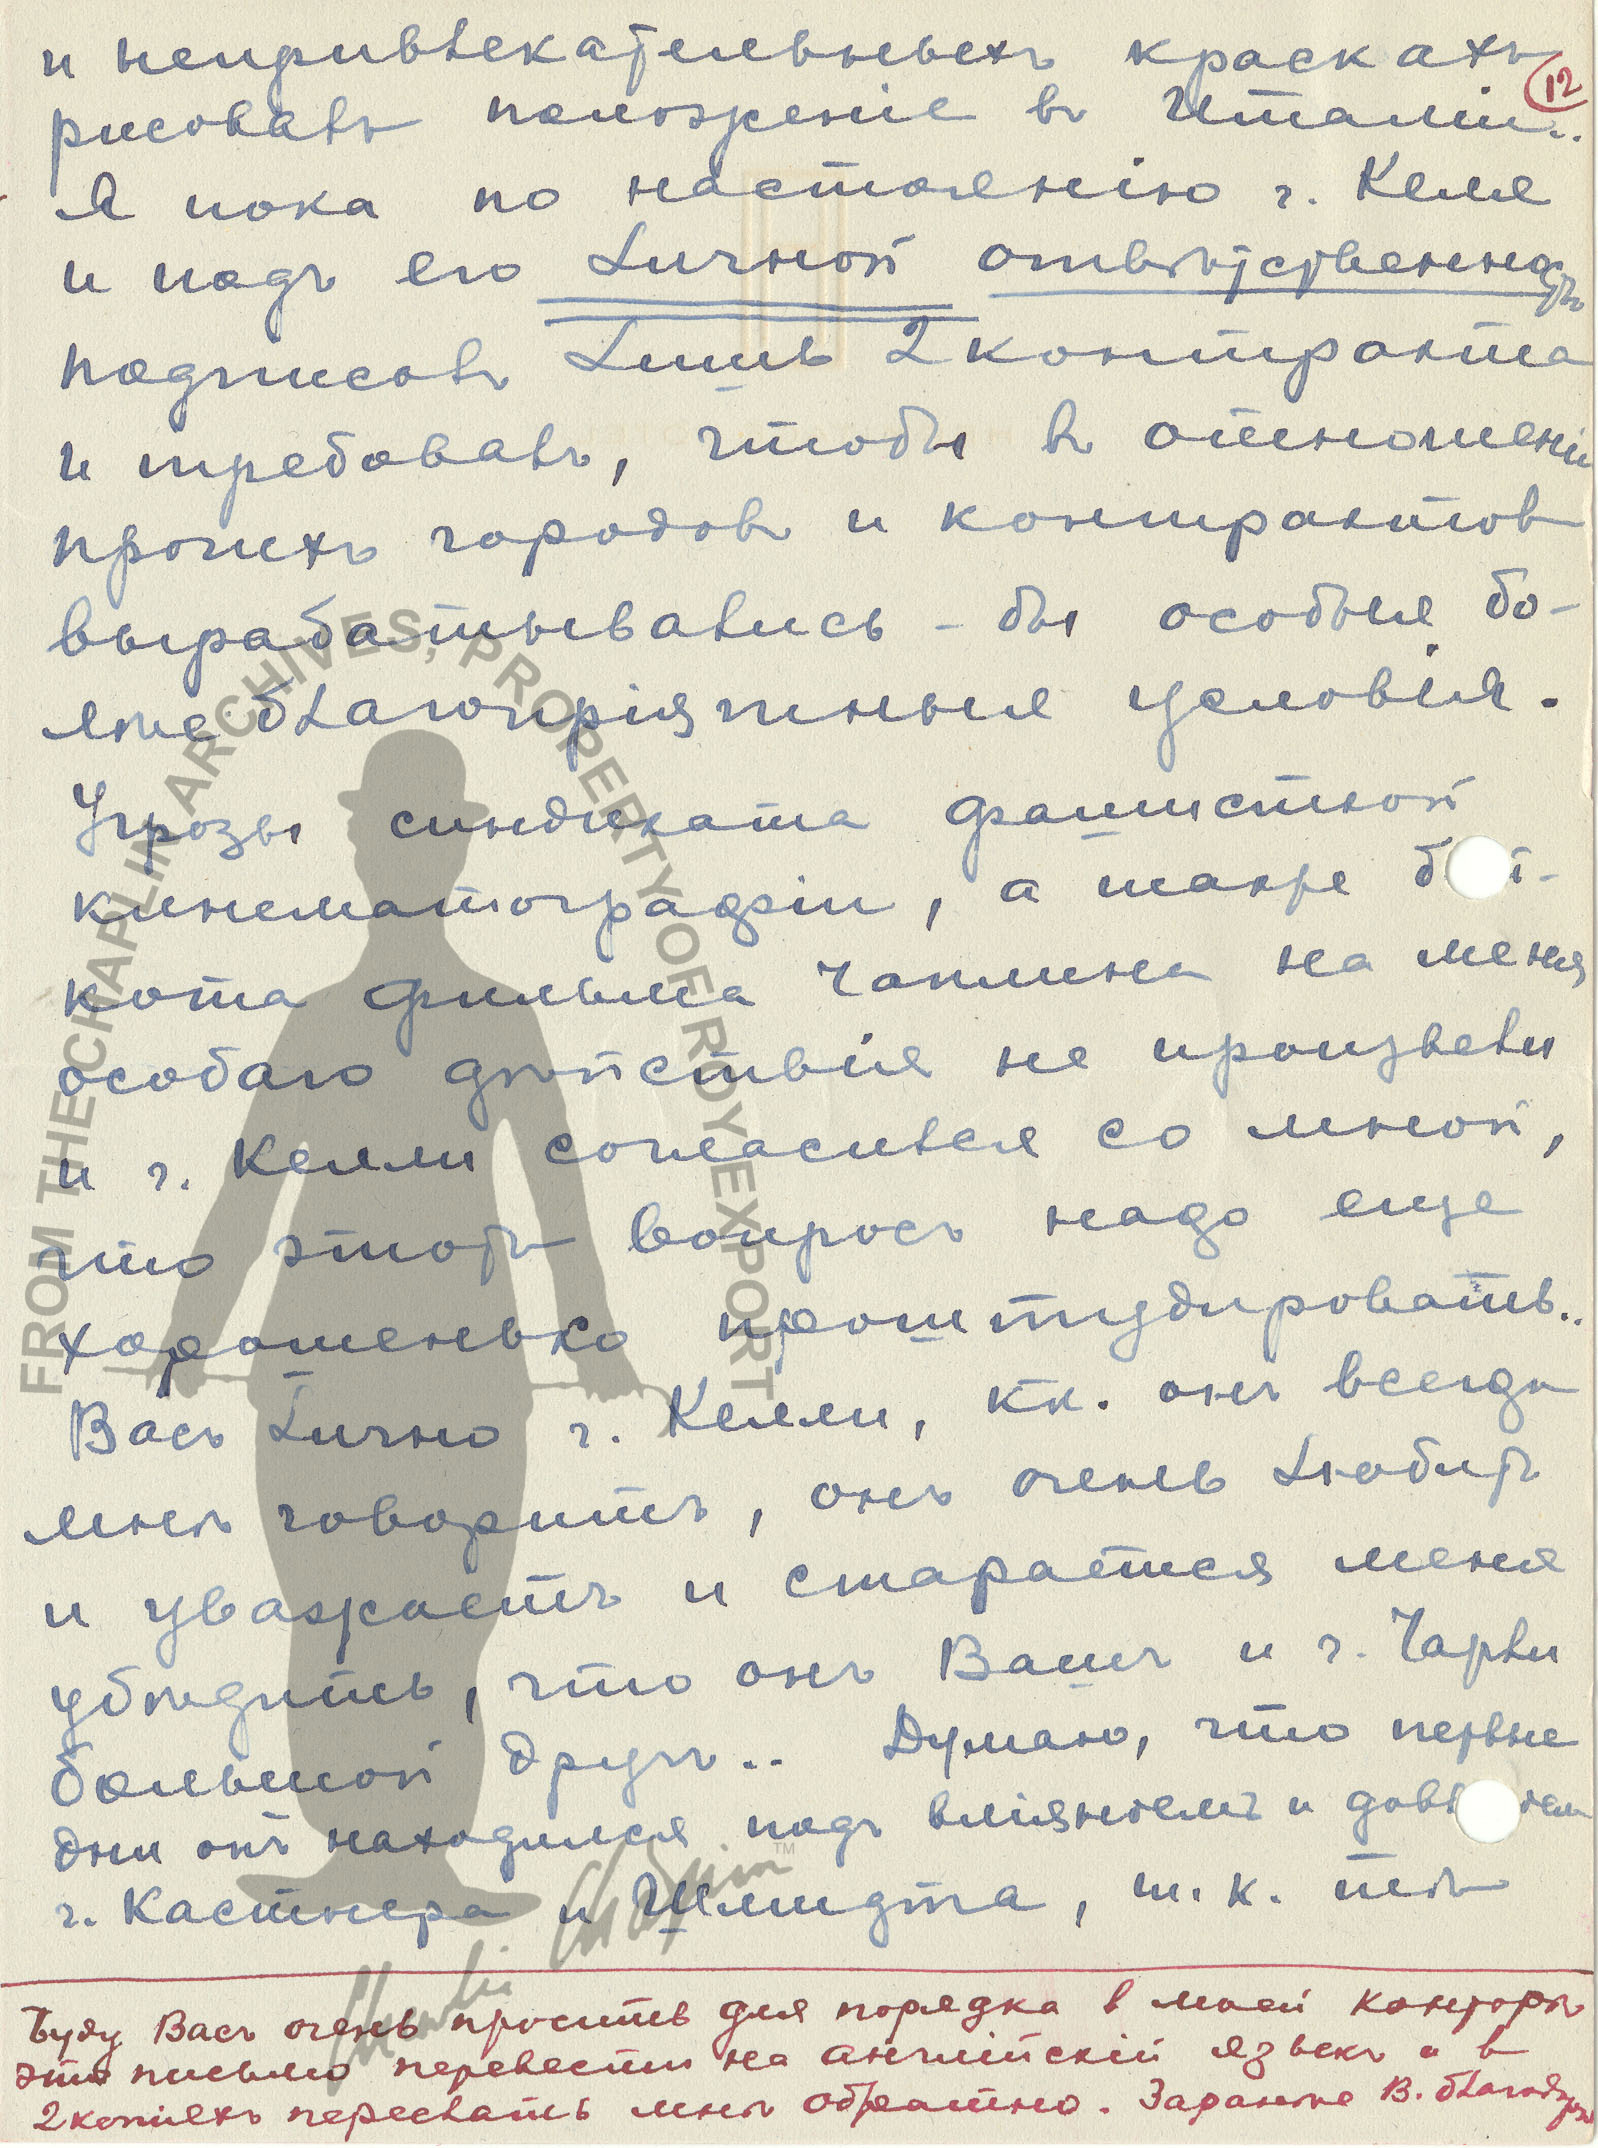 и непривлекательныхъ краскахъ
12
рисовалъ положеніе въ Италіи..
Я пока по настоянію г. Келли
и подъ его личной отвѣтственность
подписалъ лишь 2 контракта
и требовалъ, чтобы въ отношеніи
прочихъ городовъ и контрактов
вырабатывались-бы особыя бо-
лѣе благопріятныя условія.
Угрозы синдиката фашистской
кинематографіи, а также бой-
кота фильма Чаплина на меня
особаго дѣйствія не произвели
и г. Келли согласился со мной,
что этотъ вопросъ надо еще
хорошенько проштудировать..
Васъ лично г. Келли, кк. онъ всегда
мнѣ говоритъ, онъ очень любитъ
и уважаетъ и старается меня
убѣдить, что онъ Вашъ и г. Чарли
большой другъ.. Думаю, что первые
дни онъ находился подъ вліяніемъ и
г. Кастнера и Шмидта, т.к. тѣ
Буду Васъ очень просить для порядка в моей конторѣ
это письмо перевести на англійскій языкъ и в
2 копіяхъ переслать мнѣ обратно. Заранѣе В. благодарю
FROM THE CHAPLIN ARCHIVES, PROPERTY OF ROY EXPORT
Charlie Chaplin
TM